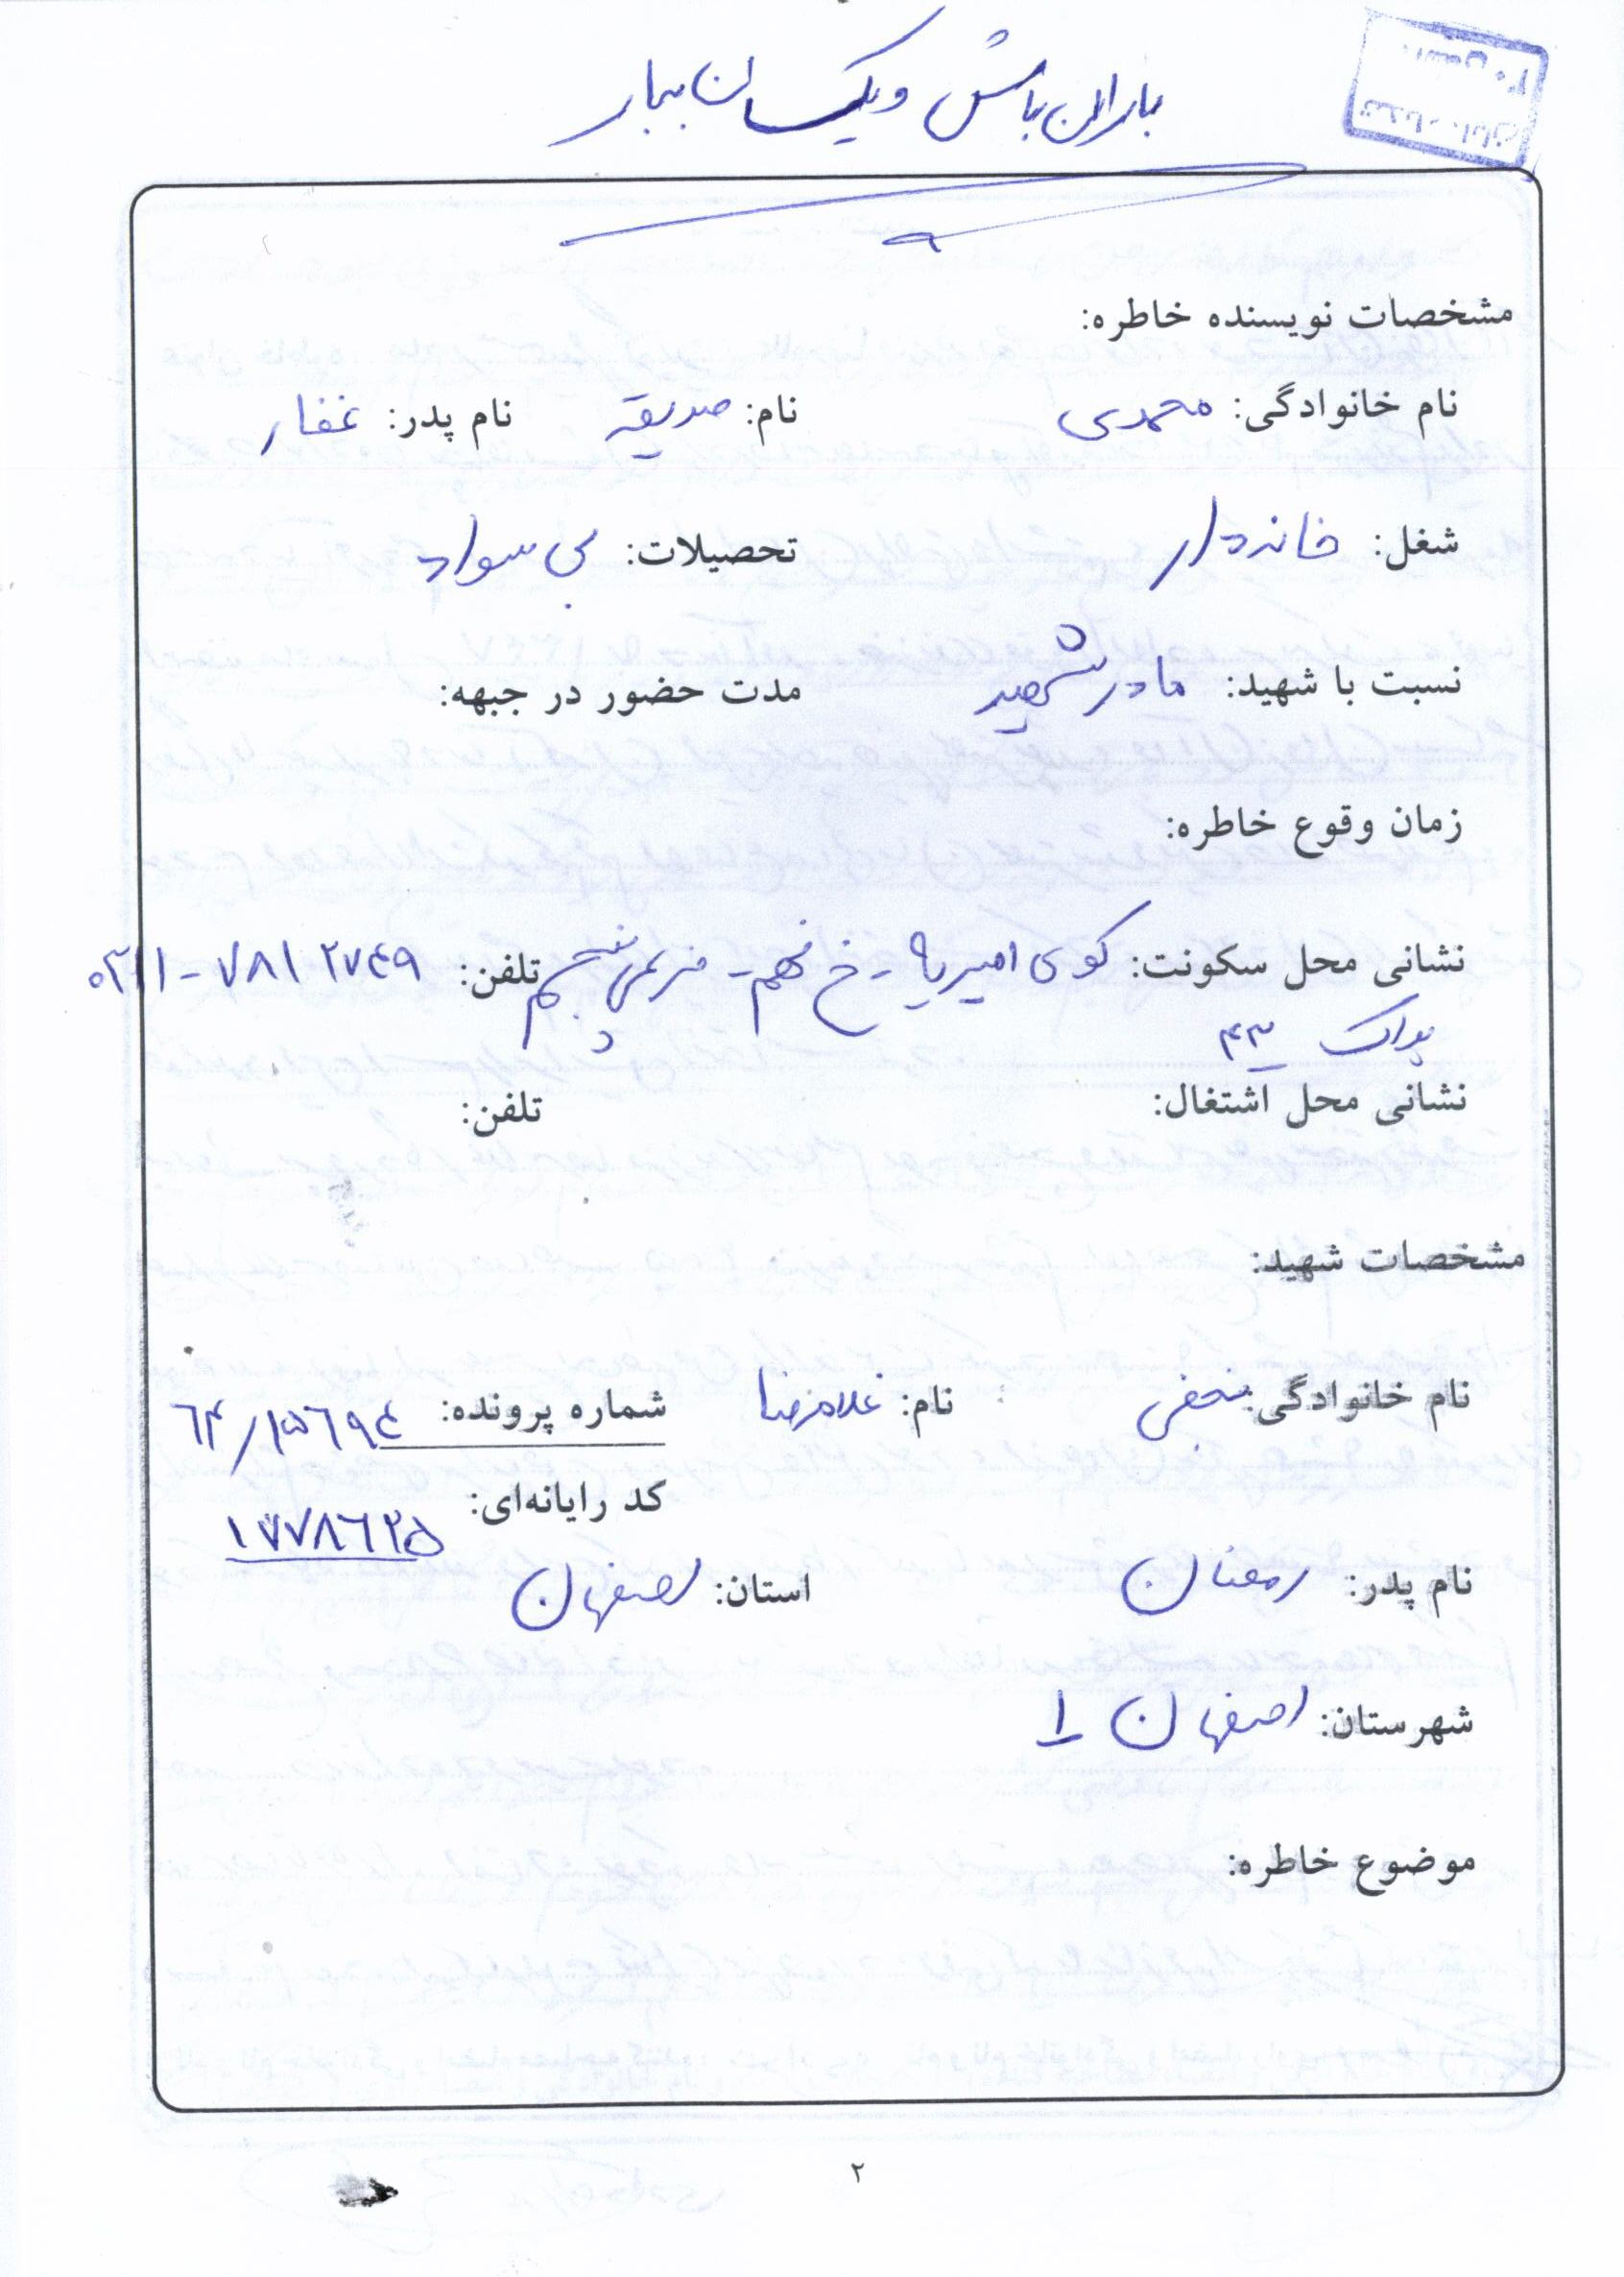 باران باش و یکسان ببار
مشخصات نویسنده خاطره:
نام خانوادگی: محمدی نام: صدیقه نام پدر: غفار
شغل: خانه دار تحصیلات: بی سواد
نسبت با شهید: مادر شهید مدت حضور در جبهه:
زمان وقوع خاطره:
نشانی محل سکونت: کوی امیریه - خ نهم - فرعی پنجم تلفن: ۰۳۱۱-۷۸۱۲۷۴۹
پلاک ۴۳
نشانی محل اشتغال: تلفن:
مشخصات شهید:
نام خانوادگی: نجفی نام: غلامرضا شماره پرونده: ۶۴/۱۵۶۹۴
کد رایانه‌ای: ۱۷۷۸۶۲۵
نام پدر: رمضان استان: اصفهان
شهرستان: اصفهان ۱
موضوع خاطره:
۲